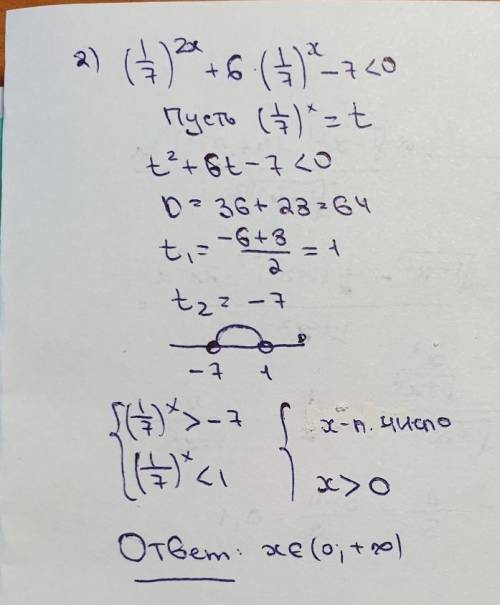 2) (1/7)^2x + 6 · (1/7)^x − 7 < 0
Пусть (1/7)^x = t
t² + 6t − 7 < 0
D = 36 + 28 = 64
t₁ = (−6+8)/2 = 1
t₂ = −7
−7 1
{ (1/7)^x > −7 { x-л. число
{ (1/7)^x < 1 { x > 0
Ответ: x ∈ (0; +∞)